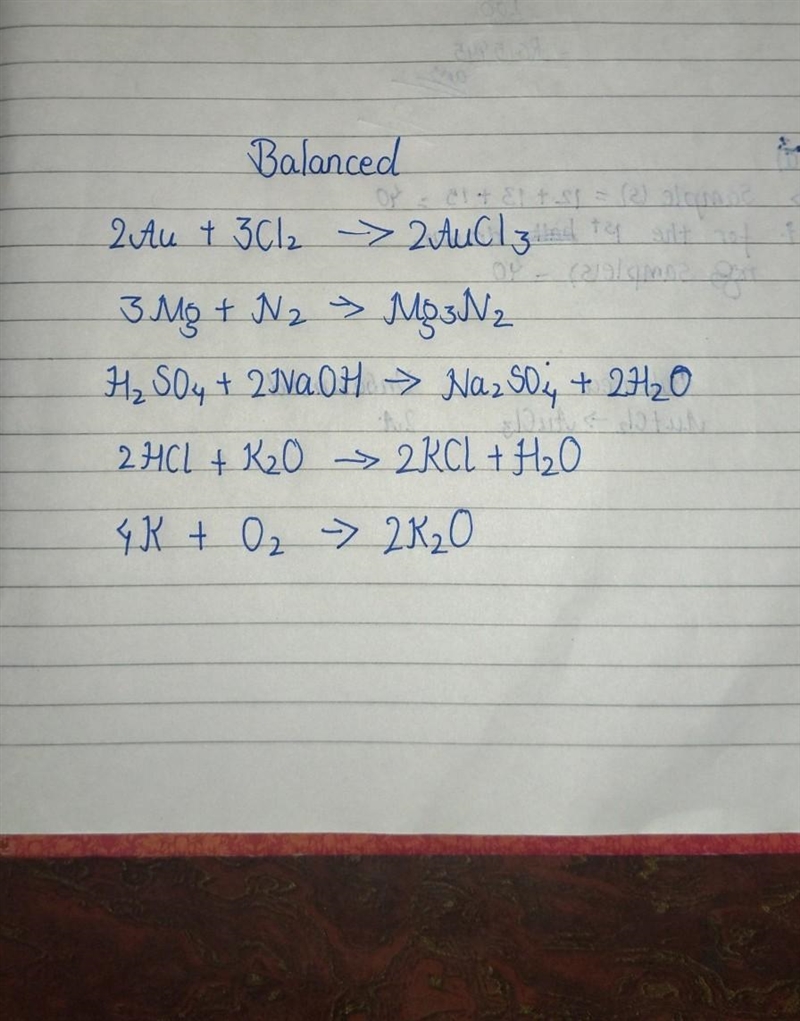 Balanced
2Au + 3Cl₂ → 2AuCl₃
3Mg + N₂ → Mg₃N₂
H₂SO₄ + 2NaOH → Na₂SO₄ + 2H₂O
2HCl + K₂O → 2KCl + H₂O
4K + O₂ → 2K₂O